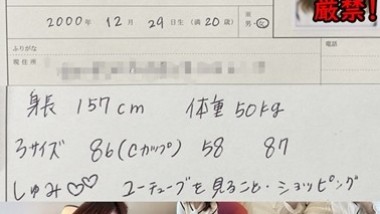 厳禁！
2000年 12月 29日生（満20歳）
※
男・女
ふりがな
現住所
電話
身長 157cm 体重 50kg
3サイズ 86(Cカップ) 58 87
しゅみ♡♡ ユーチューブを見ること・ショッピング